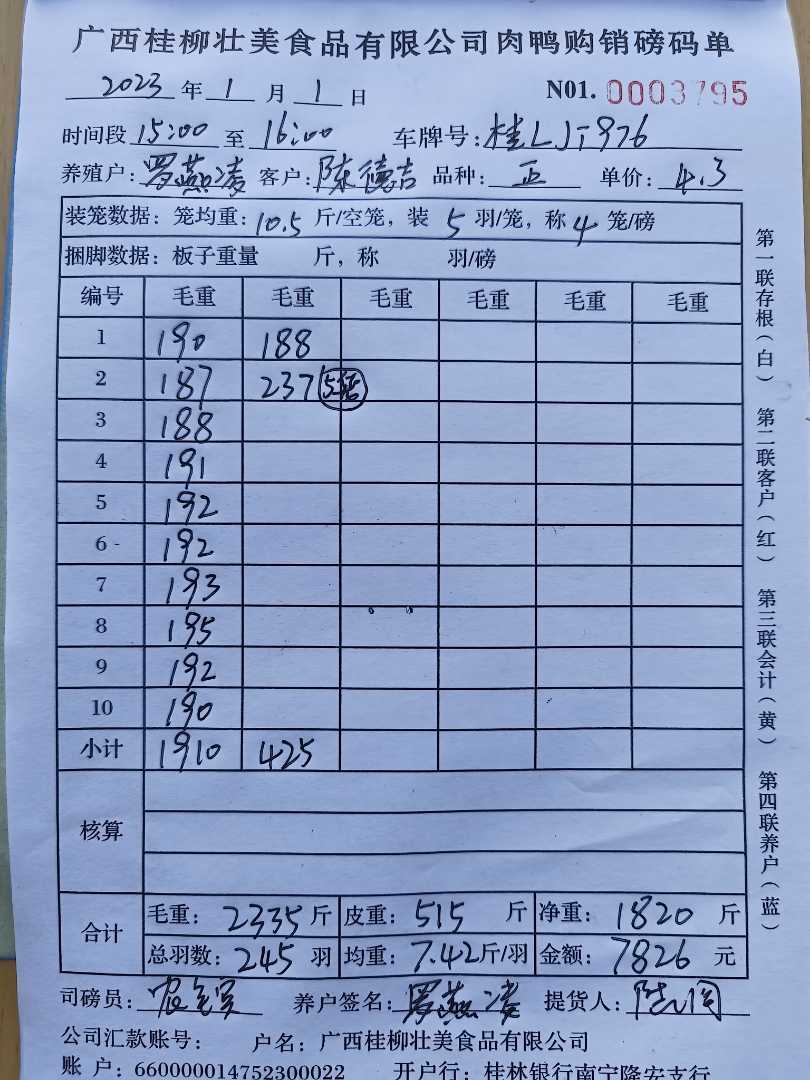 广西桂柳壮美食品有限公司肉鸭购销磅码单
2023 年 1 月 1 日 N01. 0003795
时间段 15:00 至 16:00 车牌号: 桂LJT976
养殖户: 罗燕凌 客户: 陈德吉 品种: 正 单价: 4.3
装笼数据: 笼均重: 10.5 斤/空笼, 装 5 羽/笼, 称 4 笼/磅
捆脚数据: 板子重量 斤, 称 羽/磅
编号 毛重 毛重 毛重 毛重 毛重 毛重
1 190 188
2 187 237 5
3 188
4 191
5 192
6 192
7 193
8 195
9 192
10 190
小计 1910 425
核算
合计 毛重: 2335 斤 皮重: 515 斤 净重: 1820 斤
总羽数: 245 羽 均重: 7.42 斤/羽 金额: 7826 元
司磅员: 养户签名: 罗燕凌 提货人:
公司汇款账号: 户名: 广西桂柳壮美食品有限公司
账 户: 660000014752300022 开户行: 桂林银行南宁隆安支行
第一联存根(白) 第二联客户(红) 第三联会计(黄) 第四联养户(蓝)